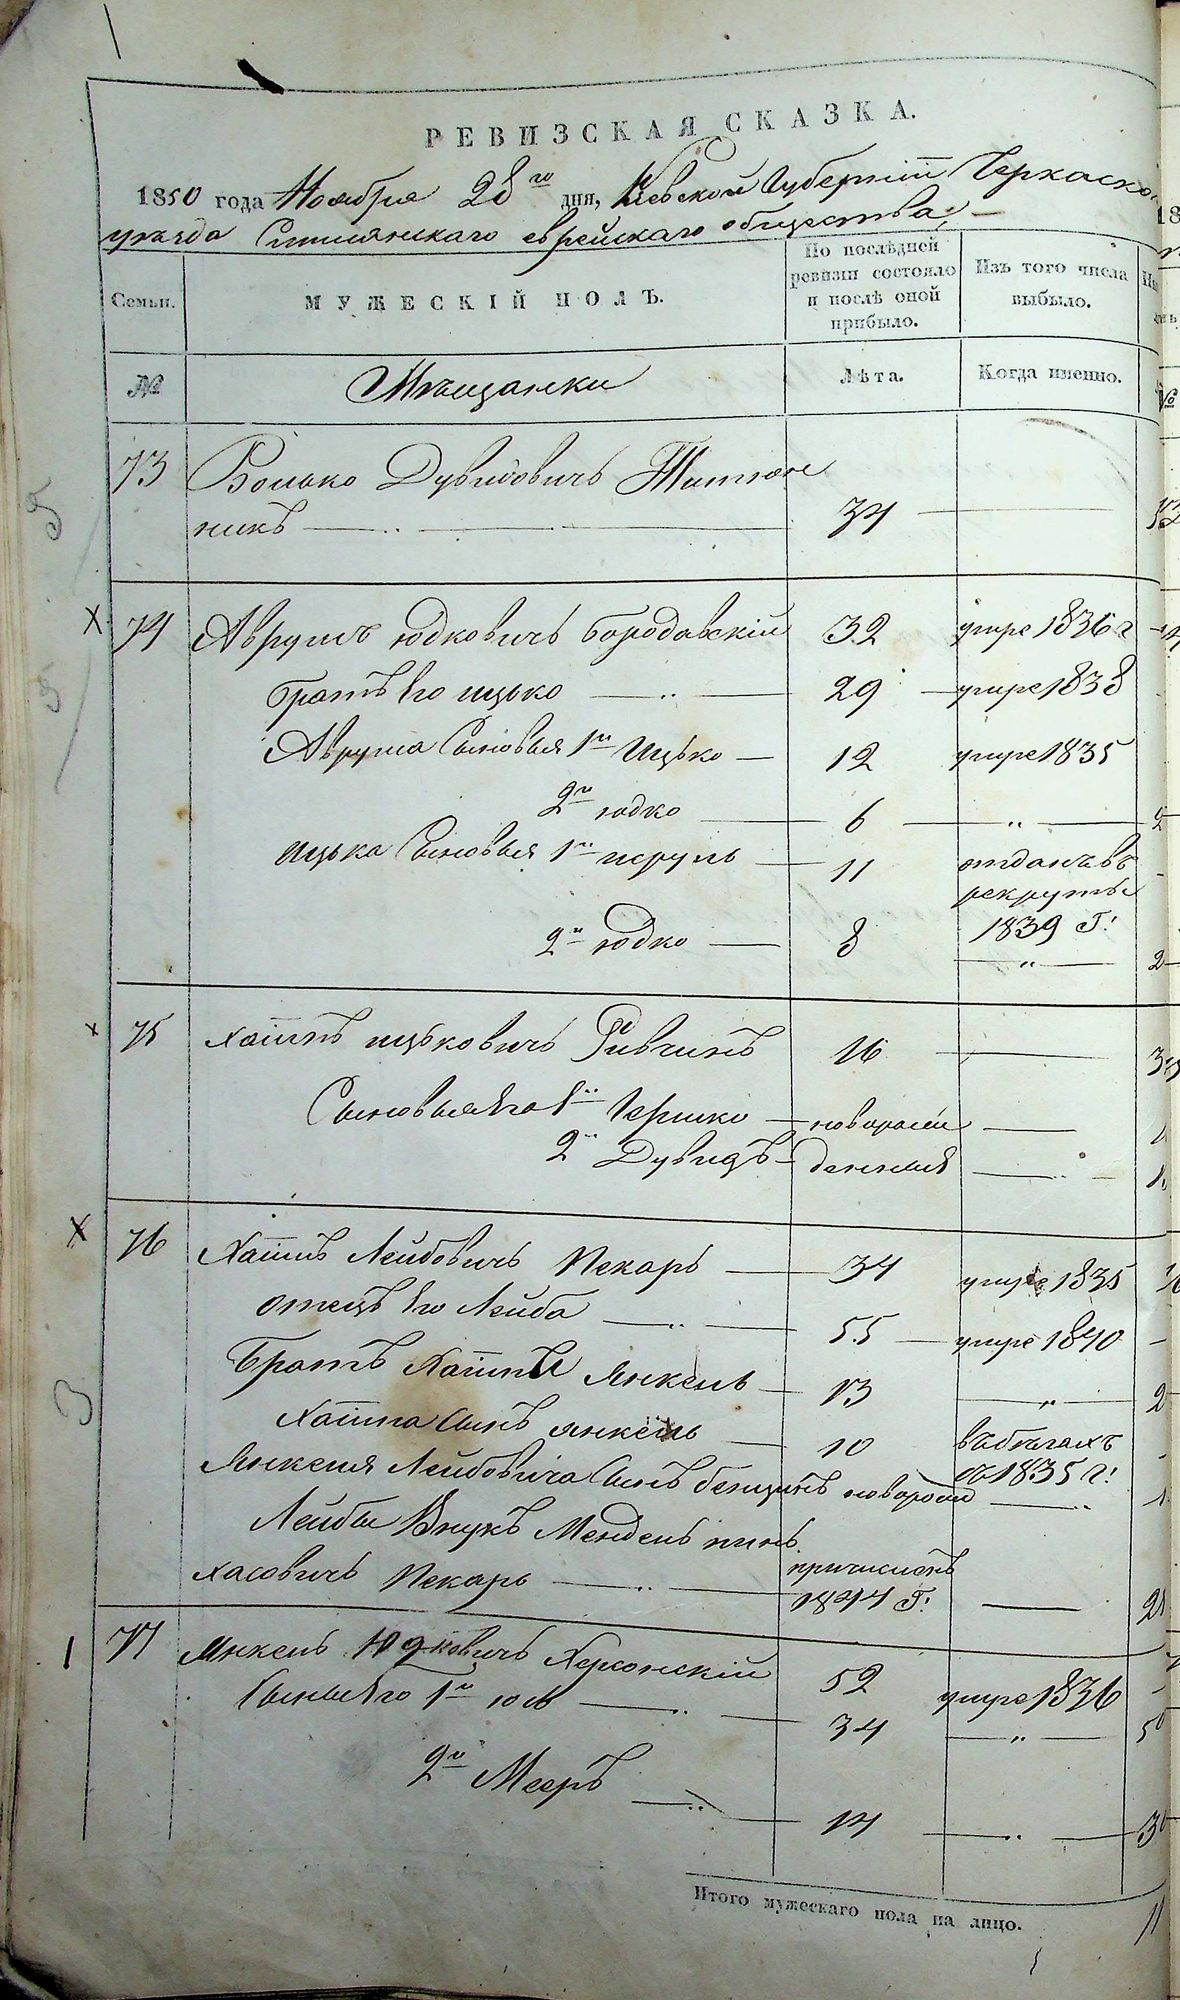 РЕВИЗСКАЯ СКАЗКА.
1850 года Ноября 28го дня, Киевской Губернии Черкаско
уезда Смилянскаго еврейскаго общества,
Семьи.
МУЖЕСКІЙ ПОЛЪ.
По послѣдней ревизіи состояло и послѣ оной прибыло.
Изъ того числа выбыло.
№
Мѣщанки
Лѣта.
Когда именно.
№
73 Волько Дувидовичъ Тютюн
никъ 34
74 Аврумъ Юдковичъ Бородавскій 32 умре 1836 г
братъ Его Ицько 29 умре 1838
Аврума Сыновья 1й Ицько 12 умре 1835
2й Юдко 6 "
Ицька Сыновья 1й Исруль 11 отданъ въ
рекруты
1839 Г:
2й Юдко 8 "
75 Хаимъ Ицьковичъ Ривчинъ 16
Сыновья Его 1й Гершко новорож
2й Дувидъ денныя
76 Хаимъ Лейбовичъ Пекарь 34 умре 1835
отецъ Его Лейба 55 умре 1840
Братъ Хаима Янкель 13 "
Хаима Сынъ Янкель 10 въ бегахъ
съ 1835 г:
Янкеля Лейбовича Сынъ Бенционъ новорож
Лейбы Внукъ Мендель Пинь
хасовичъ Пекарь причисленъ
1844 Г:
77 Янкель Юдковичъ Херсонскій 52 умре 1836
Сынья Его 1й Юсь 34 "
2й Мееръ 14
Итого мужескаго пола на лицо.